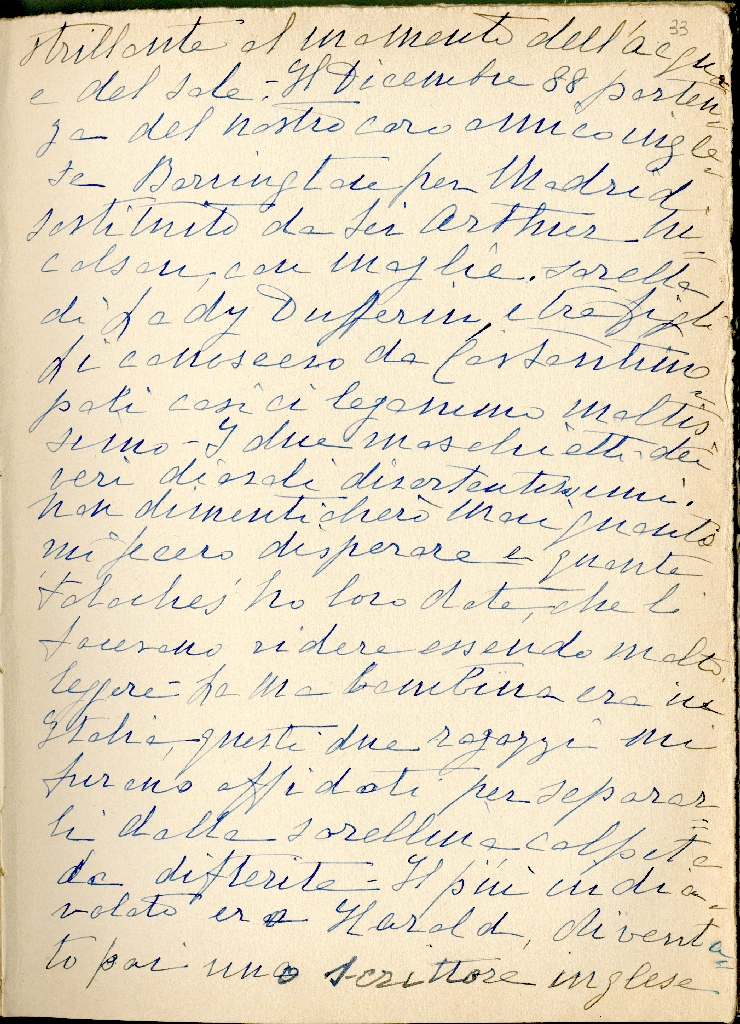 33
strillante al momento dell'acqua
e del sole. Il Dicembre 88 parten=
za del nostro caro amico ingle=
se Barrington per Madrid,
sostituito da Sir Arthur Ni=
colson, con moglie, sorella
di Lady Dufferin, e tre figli
Li conoscevo da Costantino=
poli così ci legammo moltis=
simo - I due maschietti dei
veri diavoli divertentissimi.
Non dimenticherò mai quanto
mi fecero disperare e quante
'taloches' ho loro date, che li
facevano ridere essendo molto
leggere - La mia bambina era in
Italia, questi due ragazzi mi
furono affidati per separar=
li dalla sorellina colpita
da difterite - Il più india=
volato era Harold, diventa=
to poi uno scrittore inglese